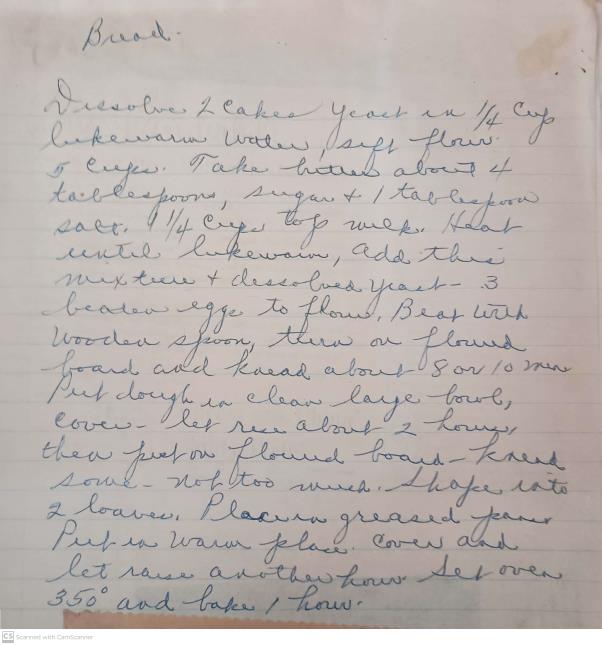 Bread.
Dissolve 2 cakes yeast in 1/4 cup
lukewarm water, sift flour
5 cups. Take butter about 4
tablespoons, sugar + 1 tablespoon
salt. 1 1/4 cups top milk. Heat
until lukewarm, add this
mixture + dissolved yeast - 3
beaten eggs to flour. Beat with
wooden spoon, turn on floured
board and knead about 8 or 10 min
Put dough in clean large bowl,
cover - let rise about 2 hours,
then put on floured board - knead
some - not too much. Shape into
2 loaves. Place in greased pans
Put in warm place. cover and
let raise another hour. Set oven
350° and bake 1 hour.
CS Scanned with CamScanner